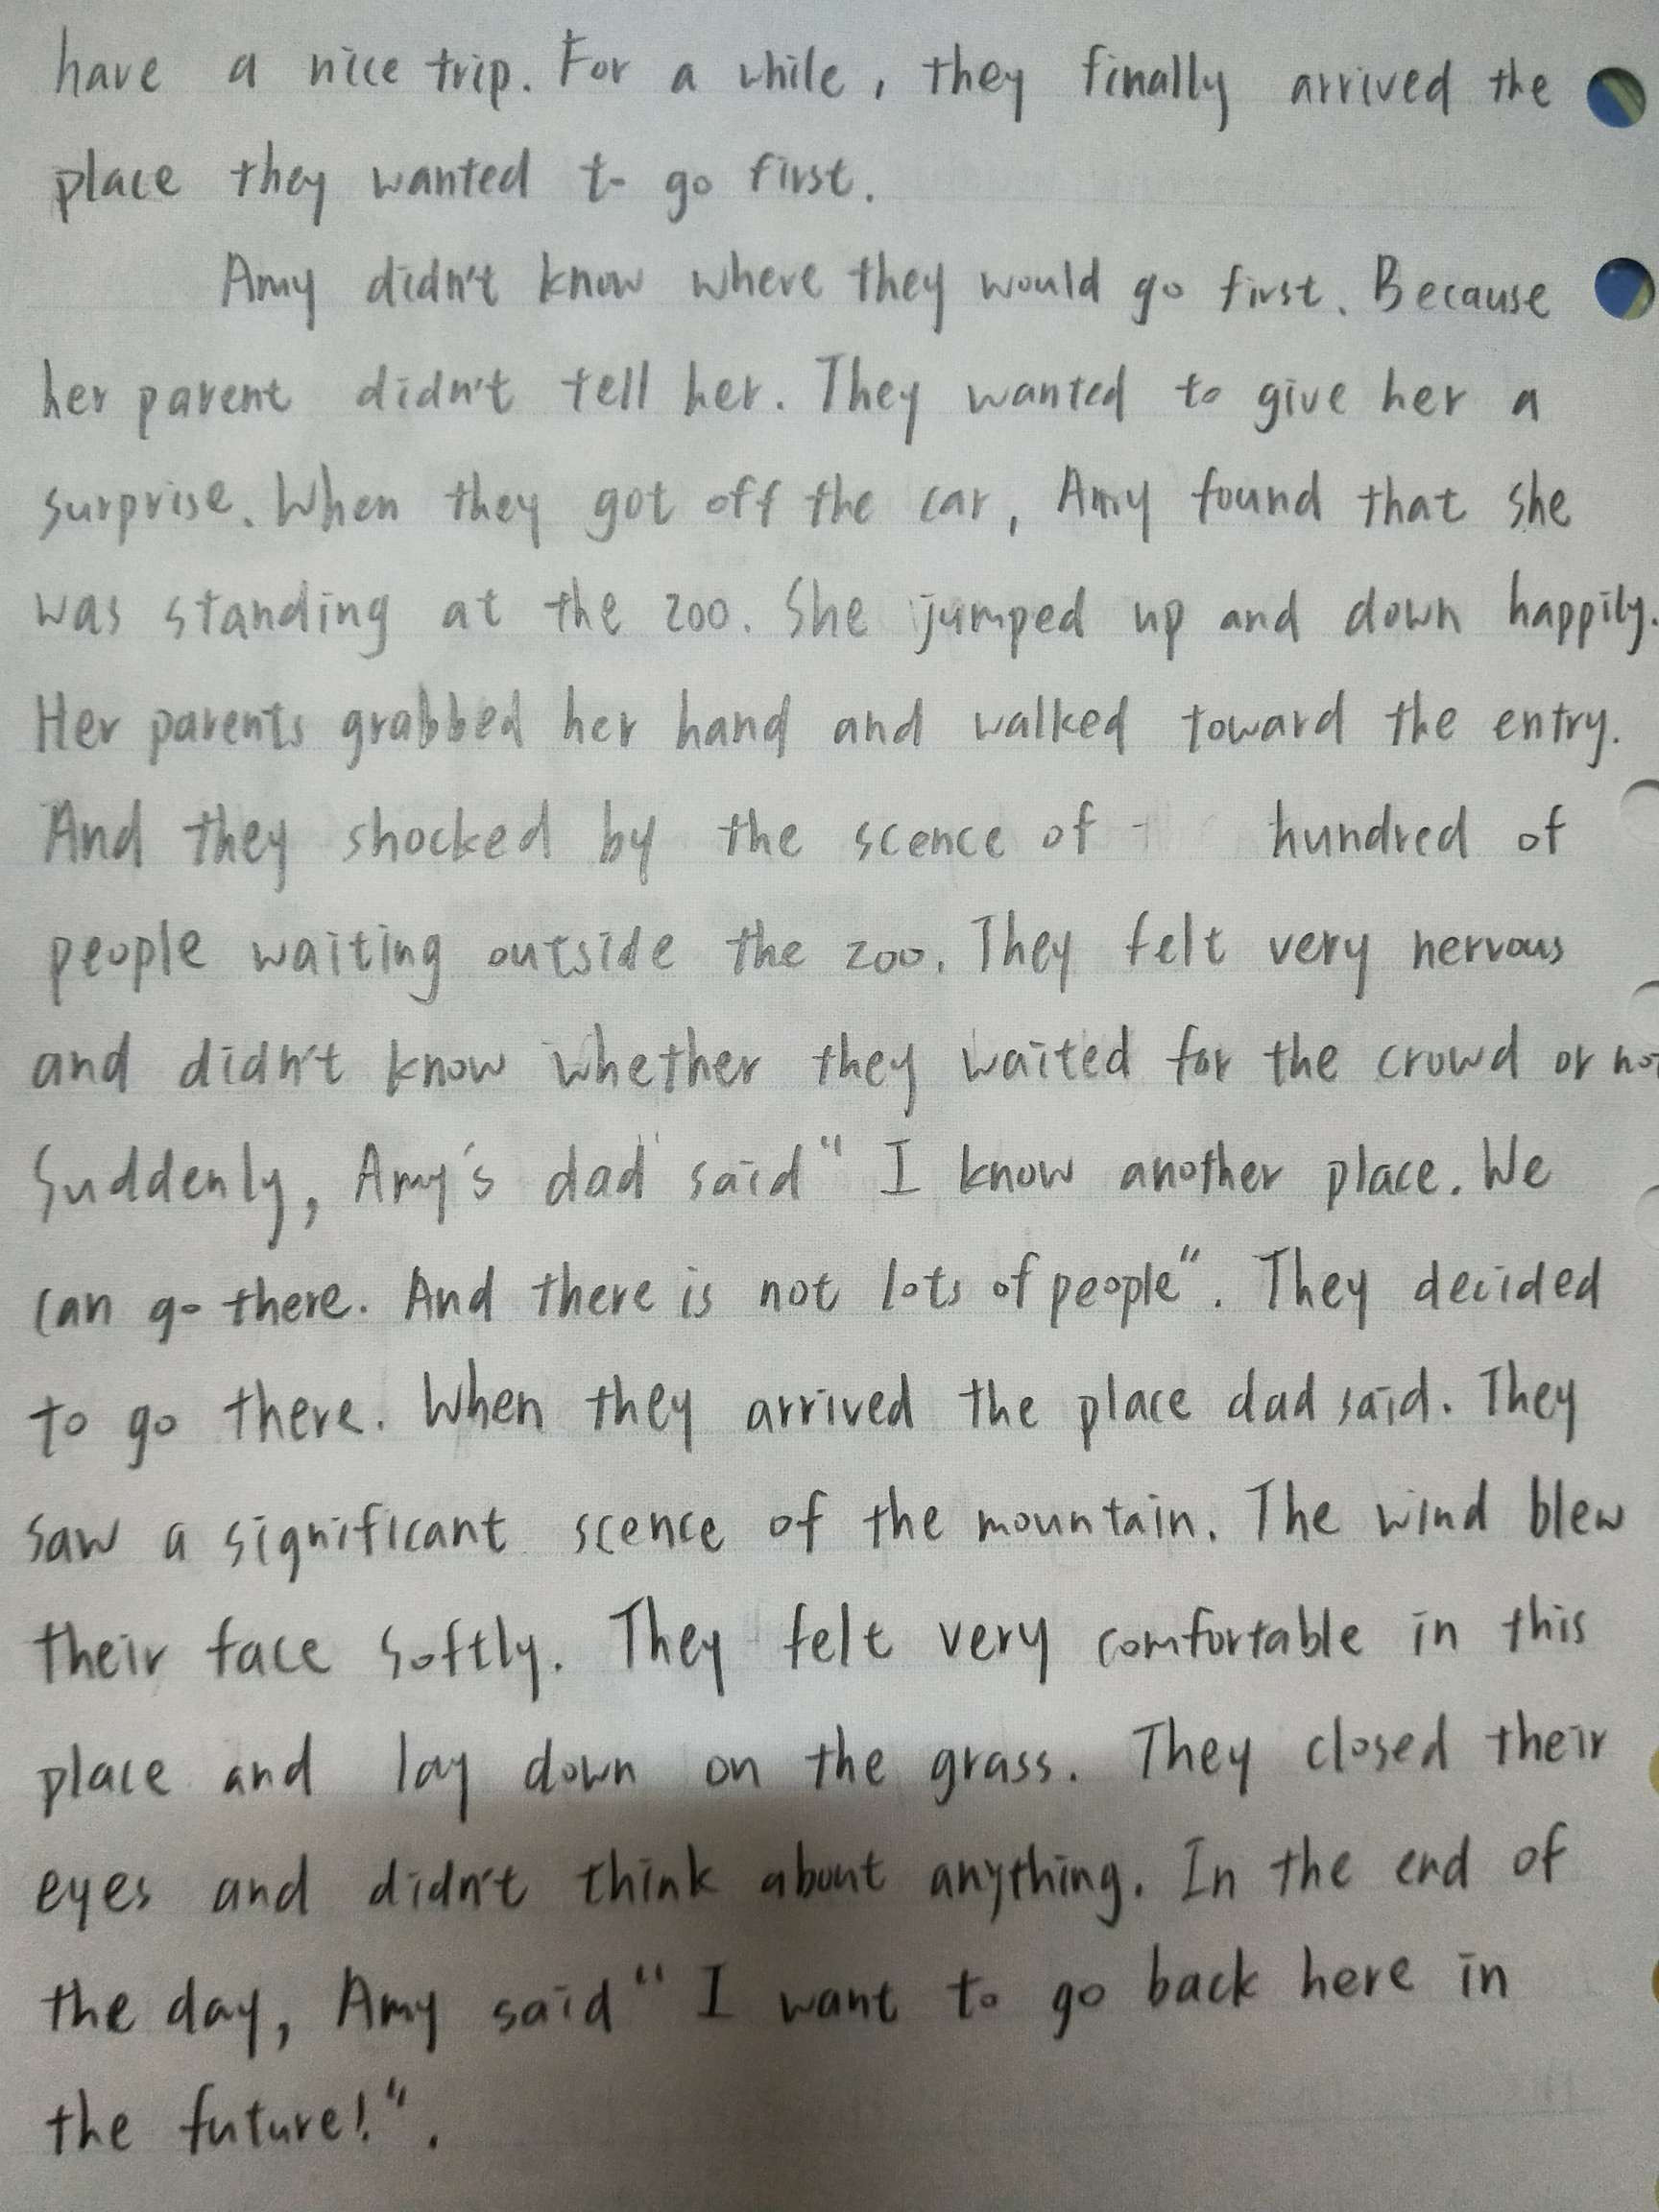 have a nice trip. For a while, they finally arrived the
place they wanted to go first.
Amy didn't know where they would go first. Because
her parent didn't tell her. They wanted to give her a
surprise. When they got off the car, Amy found that she
was standing at the zoo. She jumped up and down happily.
Her parents grabbed her hand and walked toward the entry.
And they shocked by the scence of hundred of
people waiting outside the zoo. They felt very nervous
and didn't know whether they waited for the crowd or not
Suddenly, Amy's dad said " I know another place. We
can go there. And there is not lots of people". They decided
to go there. When they arrived the place dad said. They
saw a significant scence of the mountain. The wind blew
their face softly. They felt very comfortable in this
place and lay down on the grass. They closed their
eyes and didn't think about anything. In the end of
the day, Amy said " I want to go back here in
the future!".